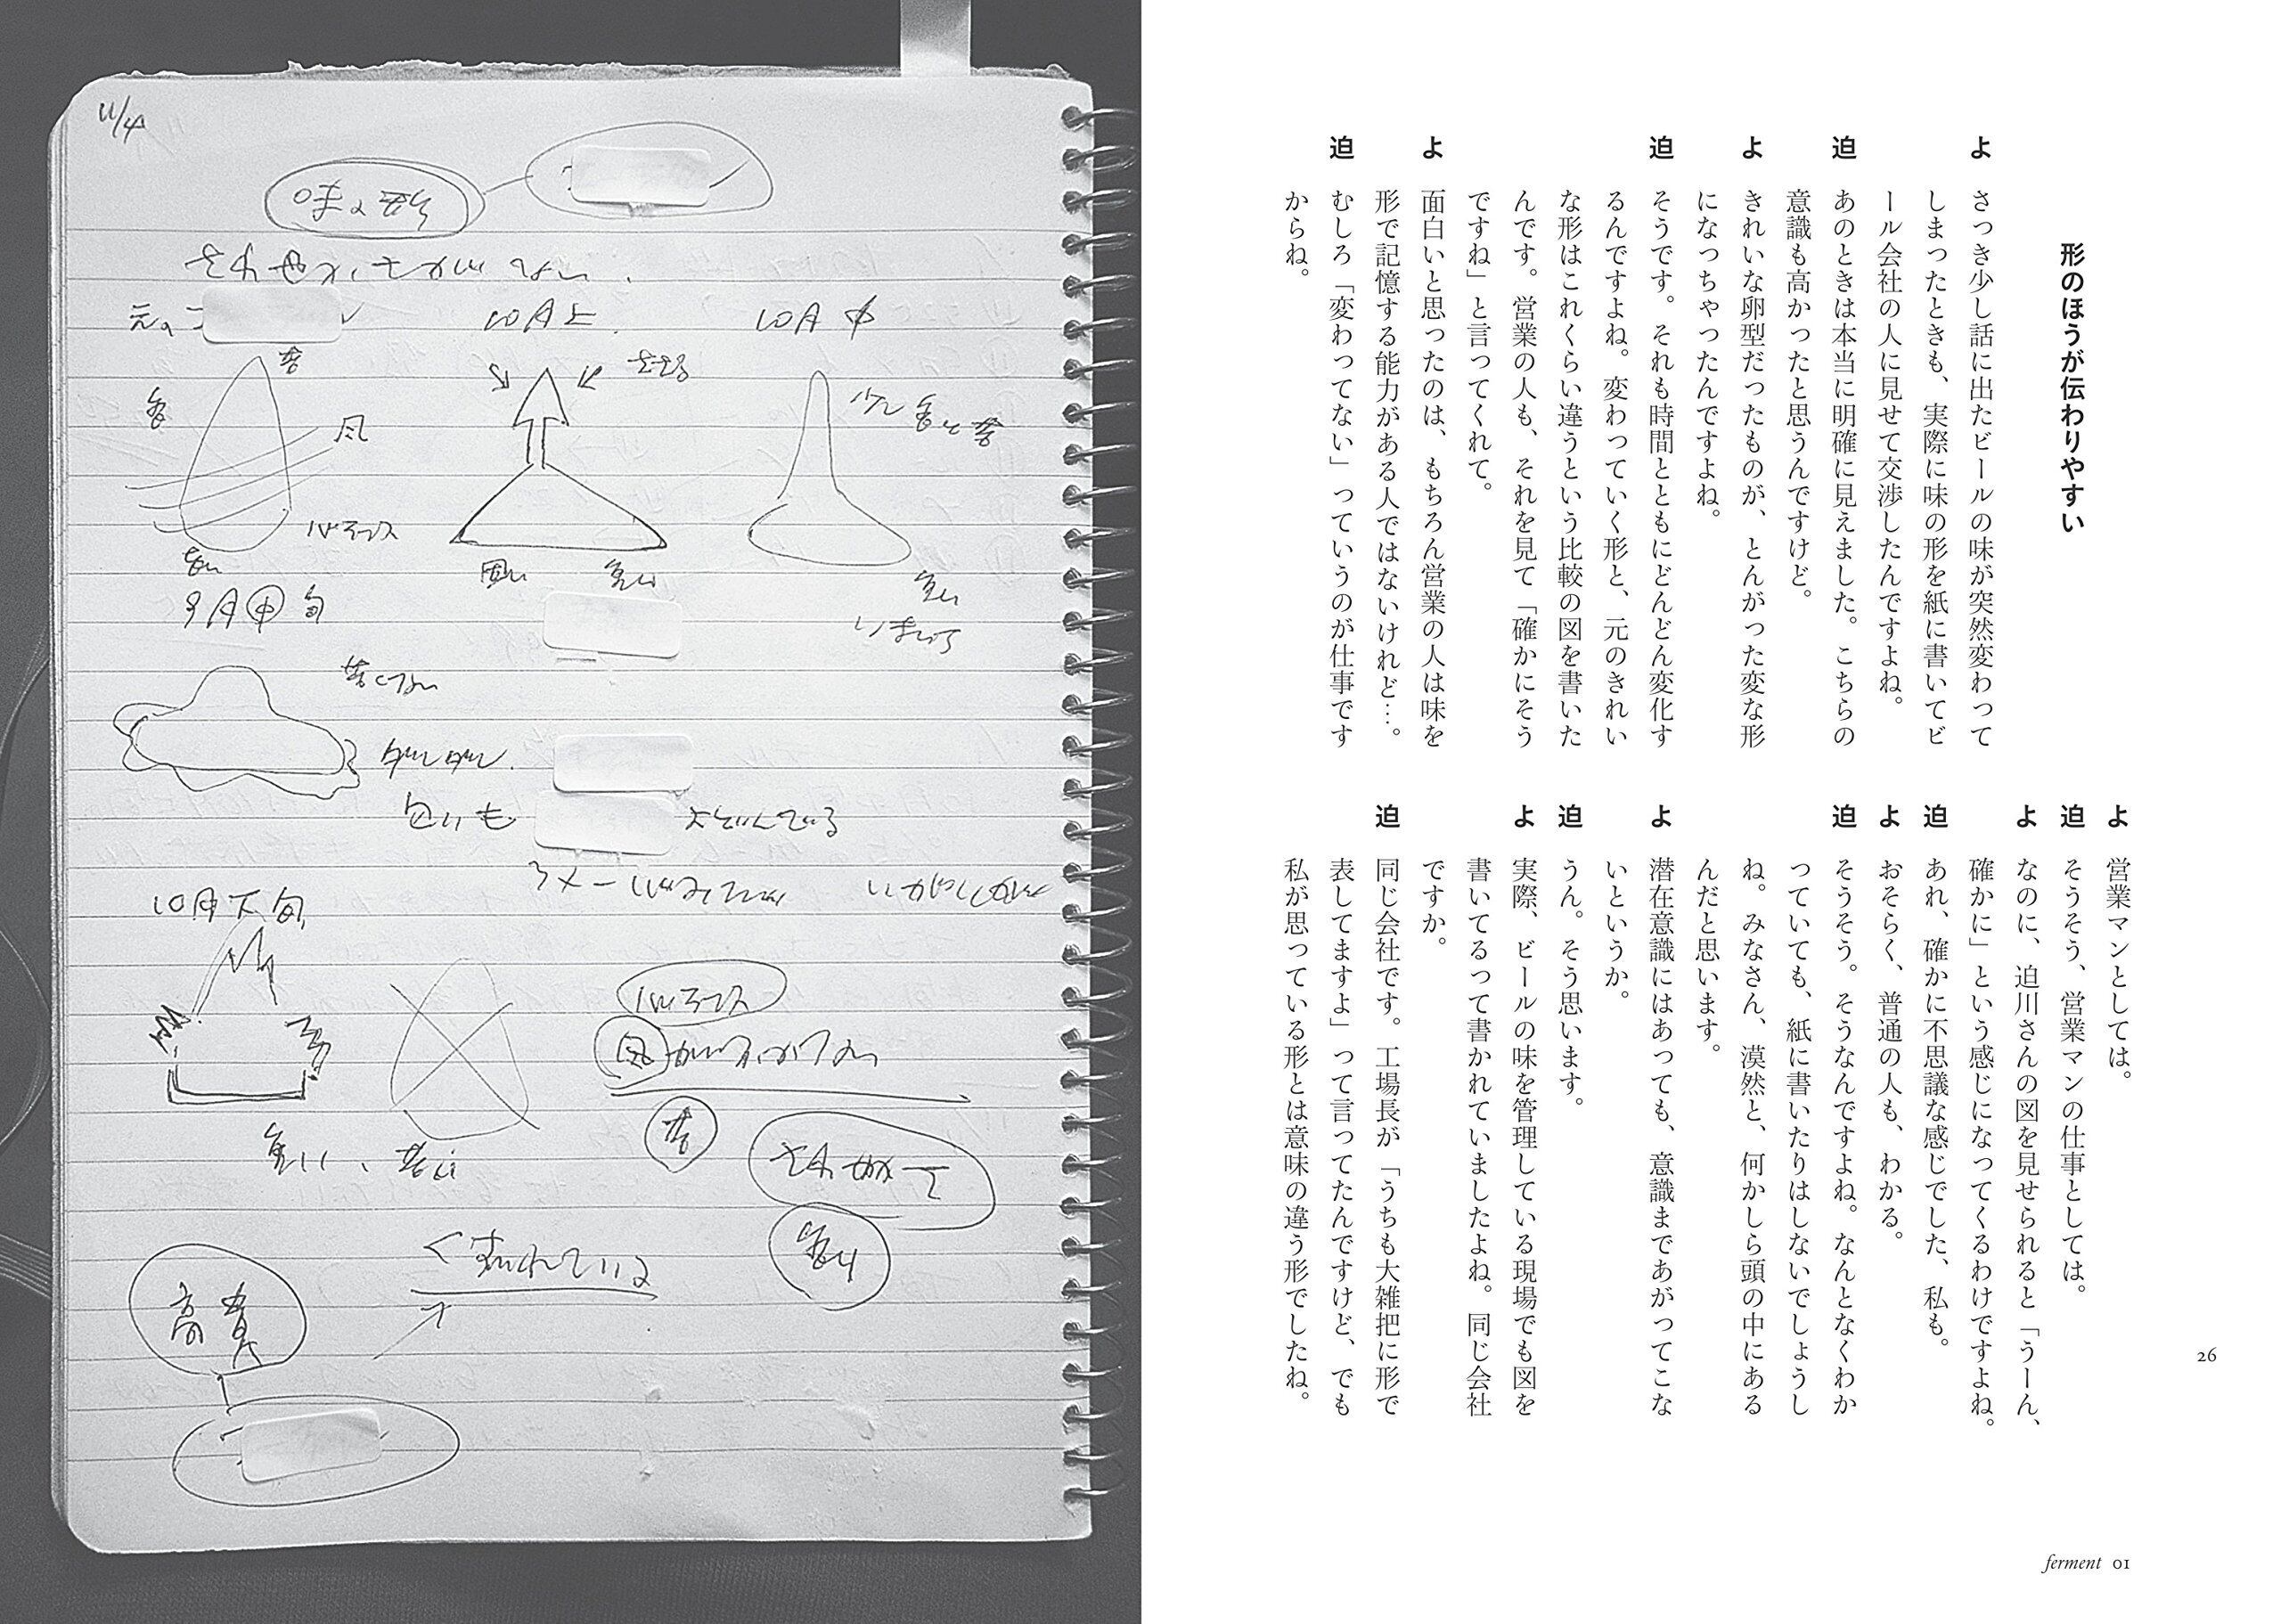 形のほうが伝わりやすい
よ さっき少し話に出たビールの味が突然変わって
しまったときも、実際に味の形を紙に書いてビ
ール会社の人に見せて交渉したんですよね。
迫 あのときは本当に明確に見えました。こちらの
意識も高かったと思うんですけど。
よ きれいな卵型だったものが、とんがった変な形
になっちゃったんですよね。
迫 そうです。それも時間とともにどんどん変化す
るんですよね。変わっていく形と、元のきれい
な形はこれくらい違うという比較の図を書いた
んです。営業の人も、それを見て「確かにそう
ですね」と言ってくれて。
よ 面白いと思ったのは、もちろん営業の人は味を
形で記憶する能力がある人ではないけれど…。
迫 むしろ「変わってない」っていうのが仕事です
からね。
よ 営業マンとしては。
迫 そうそう、営業マンの仕事としては。
よ なのに、迫川さんの図を見せられると「うーん、
確かに」という感じになってくるわけですよね。
迫 あれ、確かに不思議な感じでした、私も。
よ おそらく、普通の人も、わかる。
迫 そうそう。そうなんですよね。なんとなくわか
っていても、紙に書いたりはしないでしょうし
ね。みなさん、漠然と、何かしら頭の中にある
んだと思います。
よ 潜在意識にはあっても、意識まであがってこな
いというか。
迫 うん。そう思います。
よ 実際、ビールの味を管理している現場でも図を
書いてるって書かれていましたよね。同じ会社
ですか。
迫 同じ会社です。工場長が「うちも大雑把に形で
表してますよ」って言ってたんですけど、でも
私が思っている形とは意味の違う形でしたね。
26
ferment 01
11/4
味の形
元の
10月上
10月中
苦
風
バランス
9月中旬
苦くない
匂いも
10月下旬
バランス
風
苦
くずれている